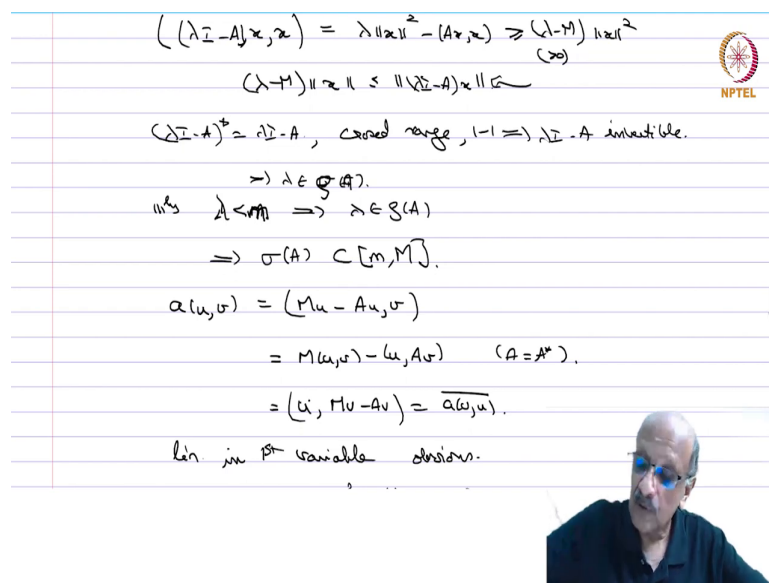 ((λI-A)x,x) = λ||x||² - (Ax,x) ≥ (λ-M) ||x||²
(>0)
(λ-M)||x|| ≤ ||(λI-A)x||
NPTEL
(λI-A)* = λI-A, closed range, 1-1 ⇒ λI-A invertible.
⇒ λ∈ρ(A).
|||ly λ<m ⇒ λ∈ρ(A)
⇒ σ(A) ⊂ [m,M].
a(u,v) = (Mu - Au, v)
= M(u,v) - (u,Av) (A=A*).
= (u, Mv-Av) = \overline{a(v,u)}.
lin. in 1st variable obvious.